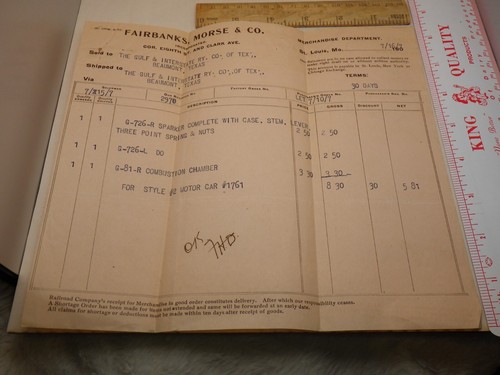 FAIRBANKS, MORSE & CO.
INCORPORATED
COR. EIGHTH ST. AND CLARK AVE.
MERCHANDISE DEPARTMENT.
St. Louis, Mo.
190
Sold to THE GULF & INTERSTATE RY. CO. OF TEX.,
BEAUMONT, TEXAS
Shipped to THE GULF & INTERSTATE RY. CO. OF TEX.,
BEAUMONT, TEXAS
Via
TERMS:
30 DAYS
7/X15/7
2970
DESCRIPTION
PRICE
GROSS
DISCOUNT
NET
1 1 G-726-R SPARKER COMPLETE WITH CASE, STEM, LEVER
THREE POINT SPRING & NUTS 2 50 2 50
1 1 G-726-L DO 2 50 2 50
1 1 G-81-R COMBUSTION CHAMBER 3 30 3 30
FOR STYLE #2 MOTOR CAR #1761 8 30 30 5 81
OK
Railroad Company's receipt for Merchandise in good order constitutes delivery. After which our responsibility ceases.
A Shortage Order has been made for items not extended and same will be forwarded at an early date.
All claims for shortage or deductions must be made within ten days after receipt of goods.
KING
QUALITY PRODUCTS